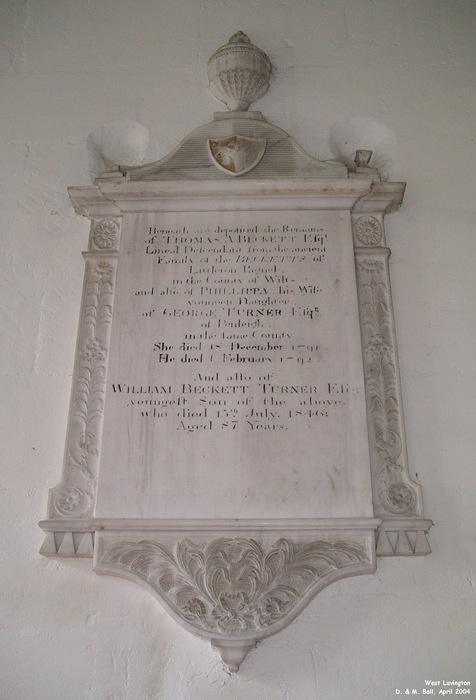 Beneath are deposited the Remains
of THOMAS A BECKETT Esqr.
Lineal Descendant from the ancient
Family of the BECKETTS of
Littleton Pagnel
in the County of Wilts
and also of PHILLIPPA his Wife
youngest Daughter
of GEORGE TURNER Esqr.
of Penleigh
in the same County
She died 18 December 1791
He died 1 February 1792
And also of
WILLIAM BECKETT TURNER Esqr.
youngest Son of the above,
who died 15th July, 1846:
Aged 87 Years.
West Lavington
D. & M. Ball, April 2004